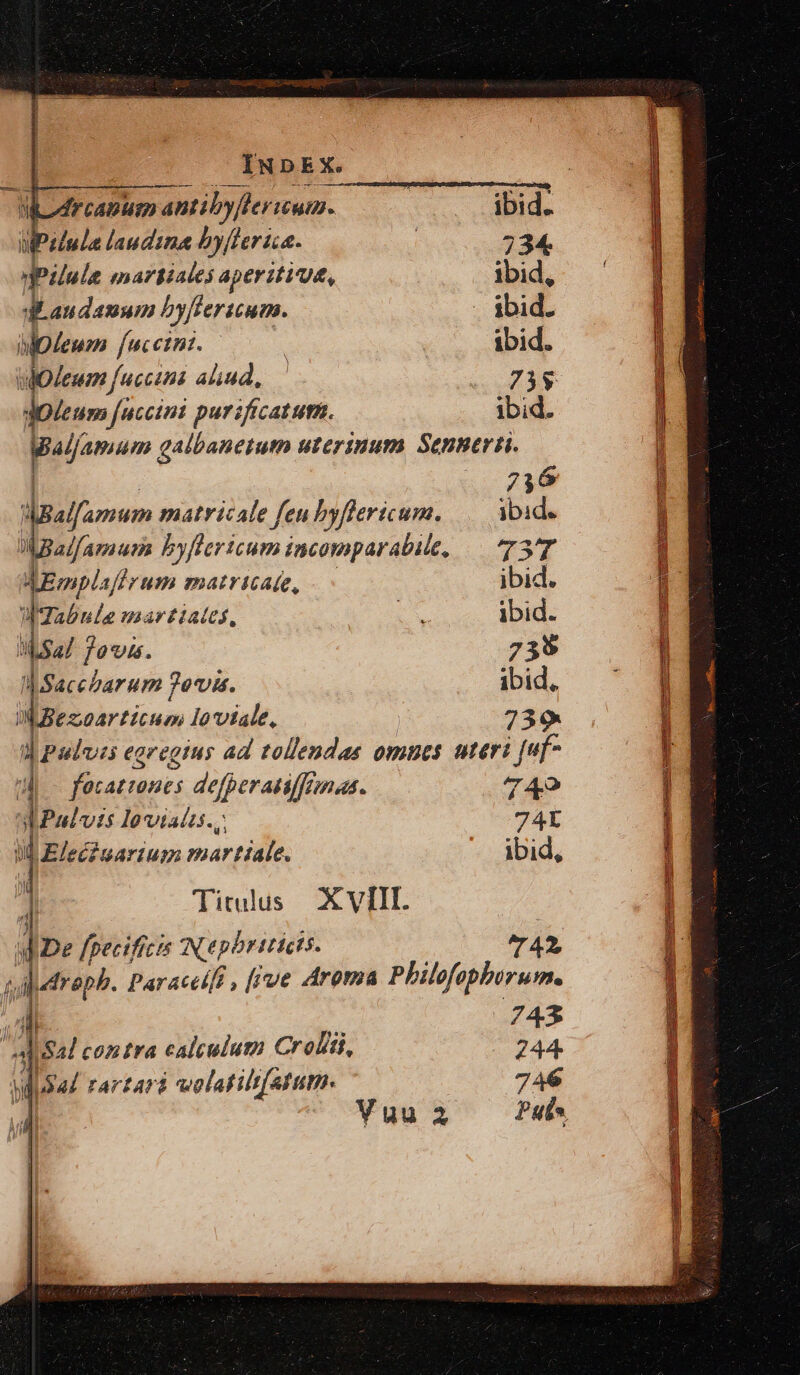 INDEX.
Arcanum antihyſtericum. ibid.
Pilulæ laudinæ hyſtericæ. 734
Pilulæ martiales aperitivæ, ibid,
Laudanum hyſtericum. ibid.
Oleum ſuccini. ibid.
Oleum ſuccini aliud, 735
Oleum ſuccini purificatum. ibid.
Balſamum galbanetum uterinum Sennerti.
736
Balſamum matricale ſeu hyſtericum. ibid.
Balſamum hyſtericum incomparabile, 737
Emplaſtrum matricale, ibid.
Tabulæ martiales, ibid.
Sal Jovis. 738
Saccharum Jovis. ibid,
Bezoarticum Ioviale, 739
Pulvis egregius ad tollendas omnes uteri ſuf-
focationes deſperatiſſimas. 740
Pulvis Iovialis. 741
Electuarium martiale. ibid,
Titulus XVIII.
De ſpecificis Nephriticis. 742
Aroph. Paracelſi, ſive Aroma Philoſophorum.
743
Sal contra calculum Crollii, 244
Sal tartari volatiliſatum. 746
Vuu 2 Pul-